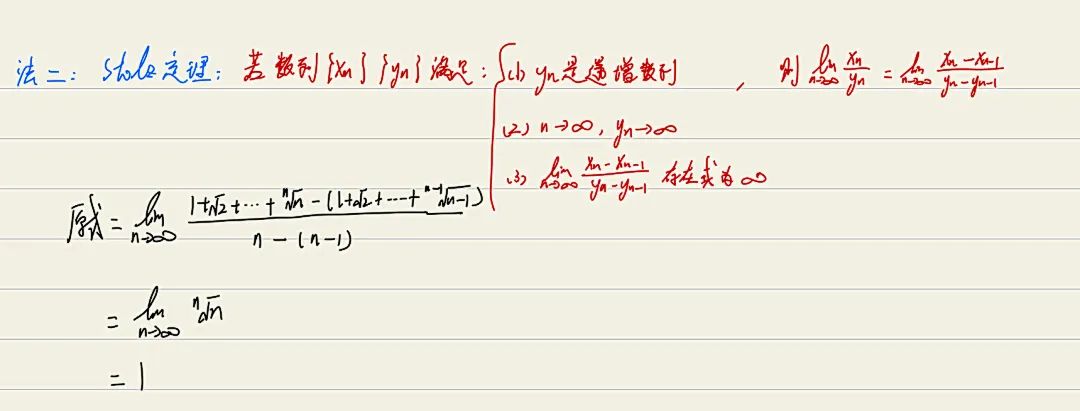 法二: Stolz定理: 若数列{xn} {yn}满足: { (1) yn是递增数列 , 则 lim n→∞ xn/yn = lim n→∞ (xn-xn-1)/(yn-yn-1)
(2) n→∞, yn→∞
(3) lim n→∞ (xn-xn-1)/(yn-yn-1) 存在或为∞
原式 = lim n→∞ (1+√2+⋯+ⁿ√n-(1+√2+⋯+ⁿ⁻¹√n-1))/(n-(n-1))
= lim n→∞ ⁿ√n
= 1